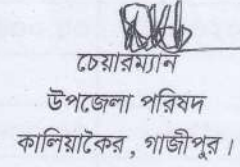 চেয়ারম্যান
উপজেলা পরিষদ
কালিয়াকৈর , গাজীপুর ।